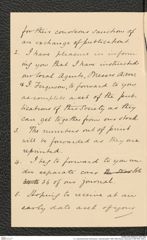 for their courteous sanction of
an exchange of publications.
2. I have pleasure in inform
ing you that I have instructed
our local Agents, Messrs
& Ferguson, to forward to you
a complete set of the publi
cations of this Society as they
can get together from our stock
3. The numbers out of print
will be forwarded as they are
reprinted.
4. I beg to forward to you un
der separate cover
36 of our Journal
5. Hoping to receive at an
early date a set of your